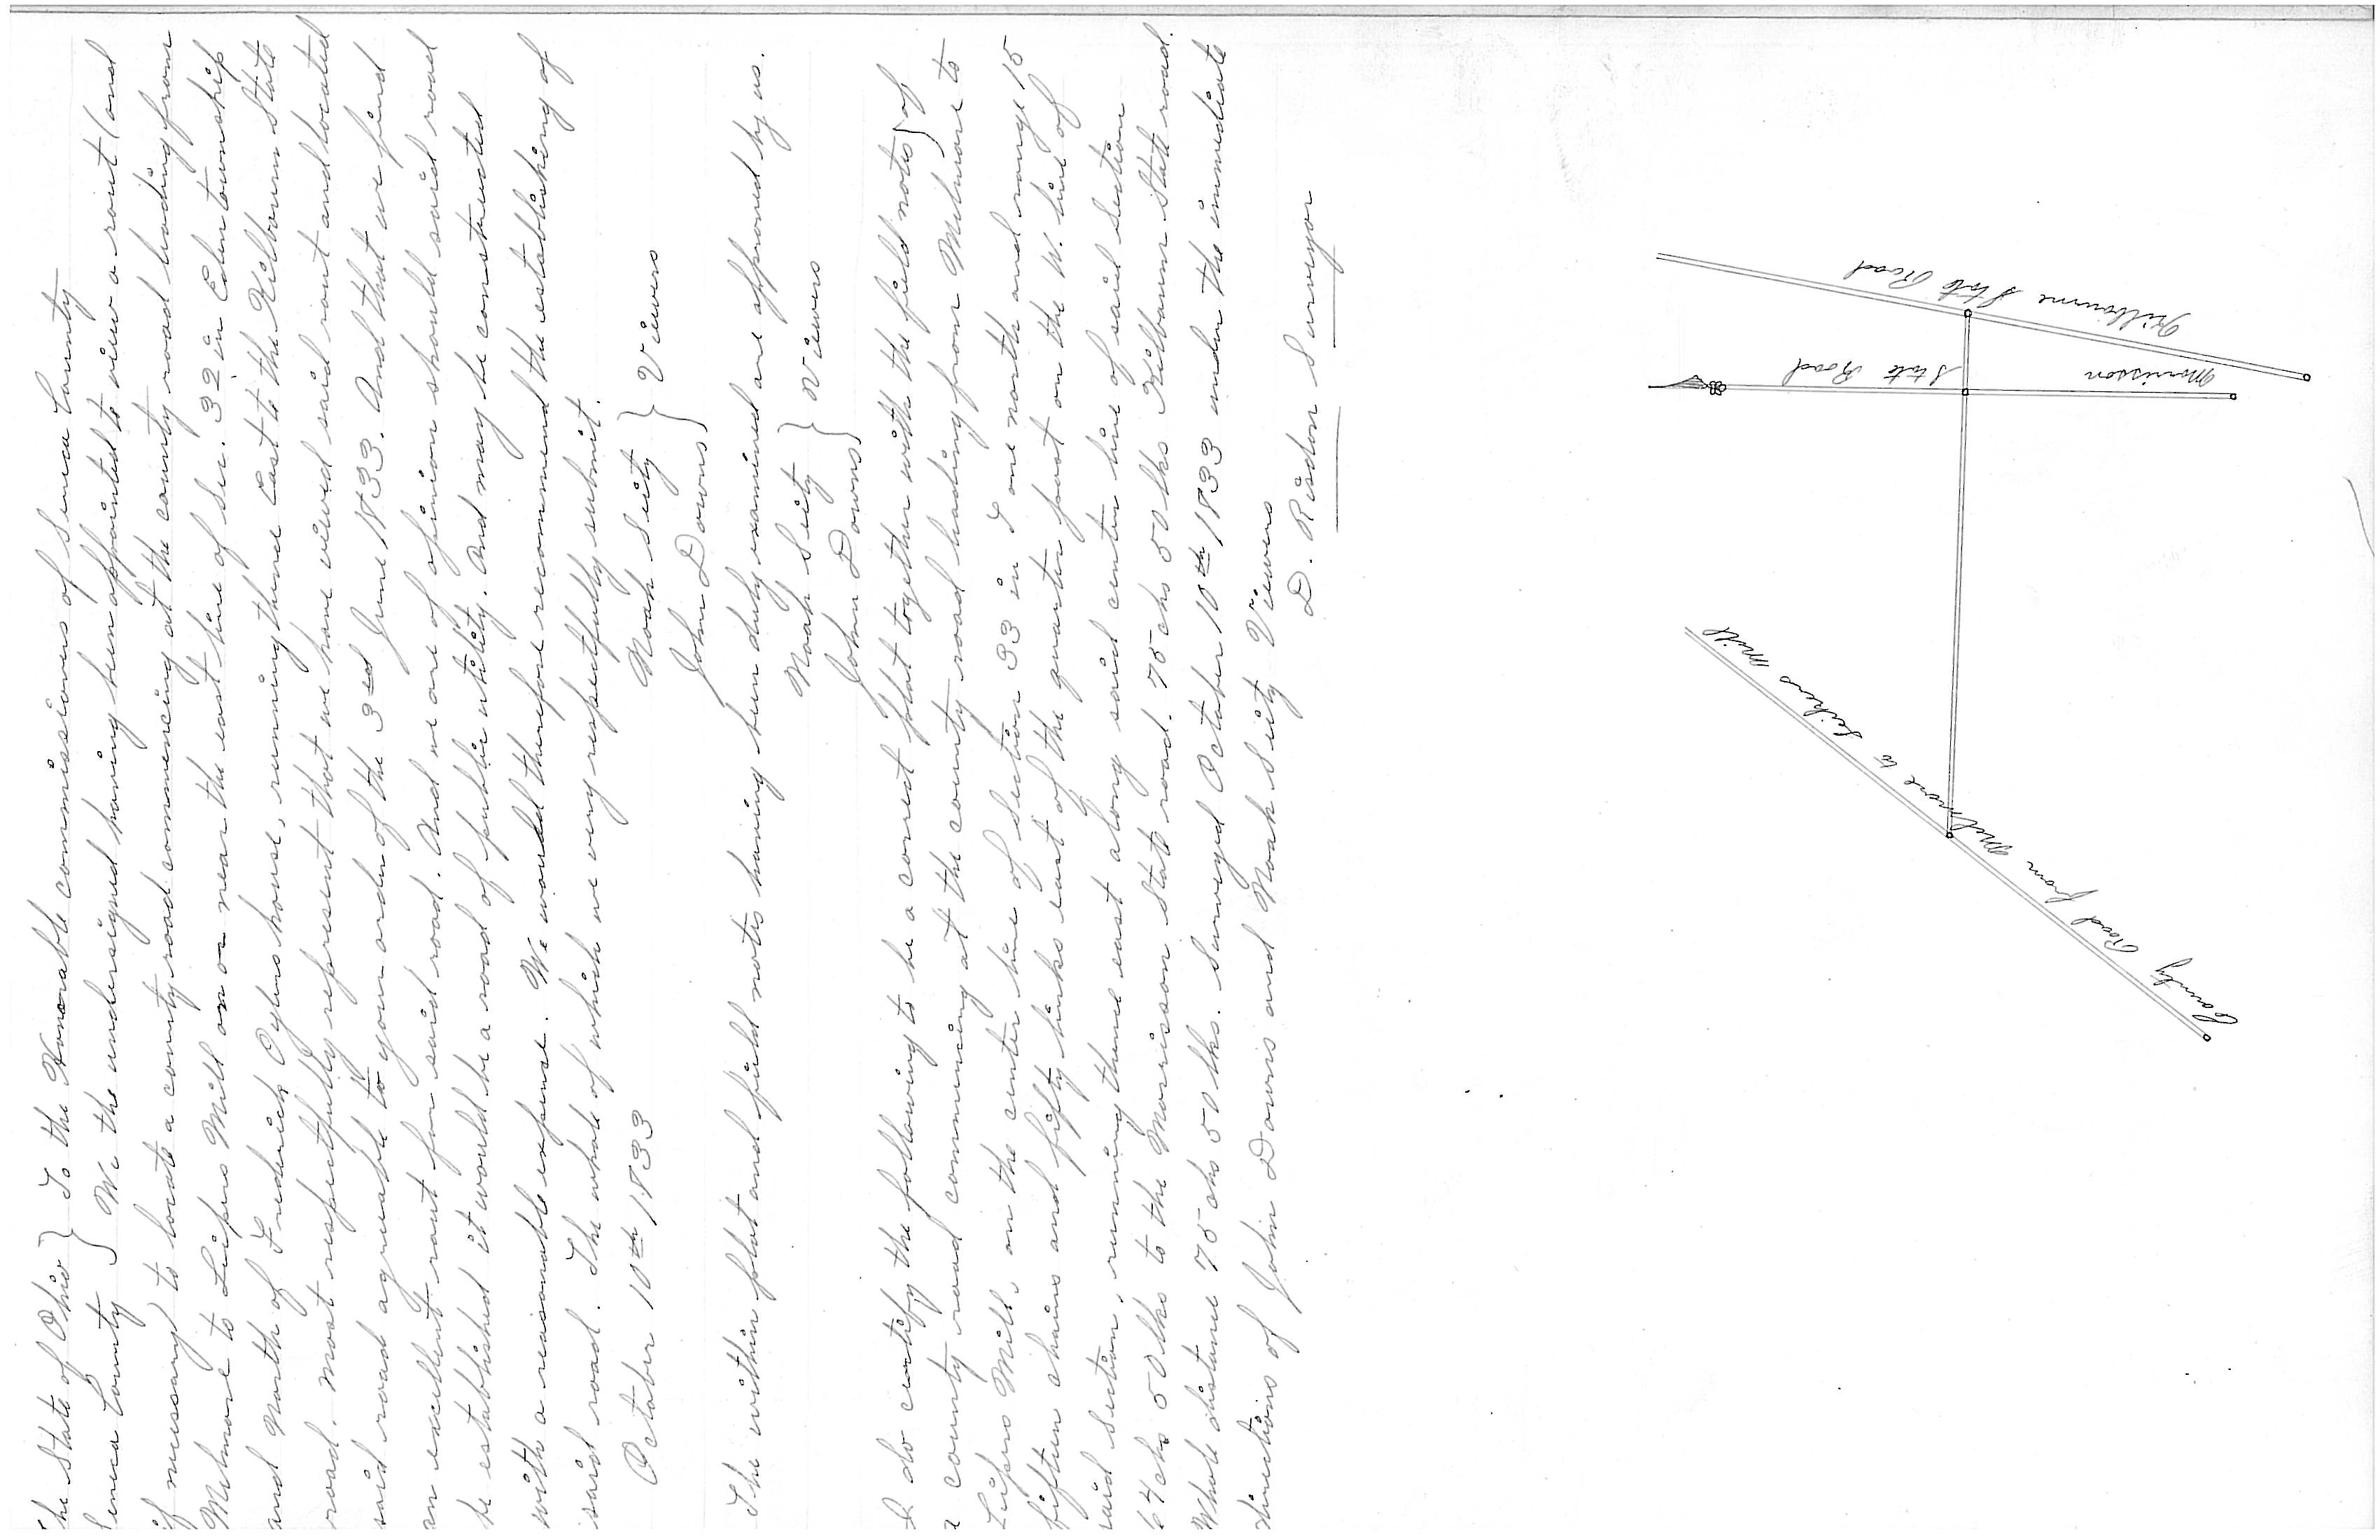 The State of Ohio } To the Honorable commissioners of Seneca County
Seneca County } We the undersigned having been appointed to view a rout (and
if necessary) to locate a county road commencing at the county road leading from
Melmore to Leipers Mill on or near the east line of Sec. 32 in Eden township
and North of Frederick Cylers house, running thence East to the Kilbourn State
road. most respectfully represent that we have viewed said rout and located
said road agreeable to your order of the 3rd June 1833. And that we find
an excellent rout for said road. And we are of opinion should said road
be established it would be a road of public utility. And may be constructed
with a reasonable expense. We would therefore recommend the establishing of
said road. The whole of which we very respectfully submit.
October 10th 1833 Noah Seity } Viewers
John Downs
The within plat and field notes having been duly examined are approved by us.
Noah Seity } Viewers
John Downs
I do certify the following to be a corect plat together with the field notes) of
a county road commencing at the county road leading from Melmore to
Leipers Mill, on the center line of Section 33 in T one north and range 15
fifteen chains and fifty links east of the quarter post on the W. line of
said Section, running thence east along said center line of said Section
64 chs 50 lks to the Morrison State road. 75 chs 50 lks Kilbourn State road.
Whole distance 75 chs 50 lks. Surveyed October 10th 1833 under the immediate
directions of John Downs and Noah Seity Viewers
D. Risdon Surveyor
Kilbourne State Road
Morrison State Road
County Road from Melmore to Leipers Mill